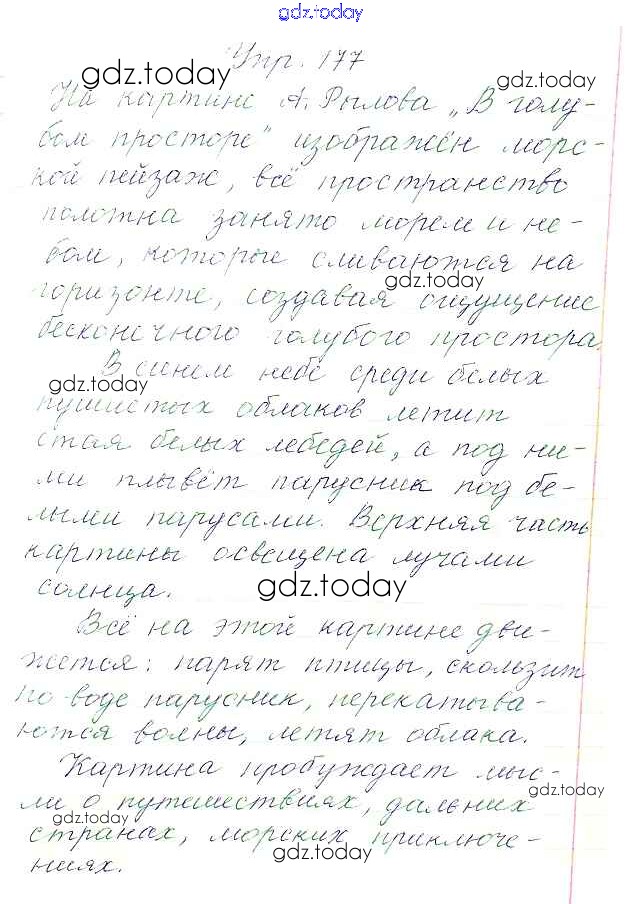 gdz.today
Упр. 177
gdz.today
gdz.today
На картине А. Рылова „В голу-
бом просторе" изображён морс-
кой пейзаж, всё пространство
полотна занято морем и не-
бом, которые сливаются на
gdz.today
горизонте, создавая ощущение
бесконечного голубого простора.
В синем небе среди белых
gdz.today
пушистых облаков летит
стая белых лебедей, а под ни-
ми плывёт парусник под бе-
лыми парусами. Верхняя часть
картины освещена лучами
солнца.
gdz.today
Всё на этой картине дви-
жется: парят птицы, скользит
по воде парусник, перекатыва-
ются волны, летят облака.
Картина пробуждает мыс-
gdz.today
ли о путешествиях, дальних
gdz.today
странах, морских приключе-
gdz.today
ниях.